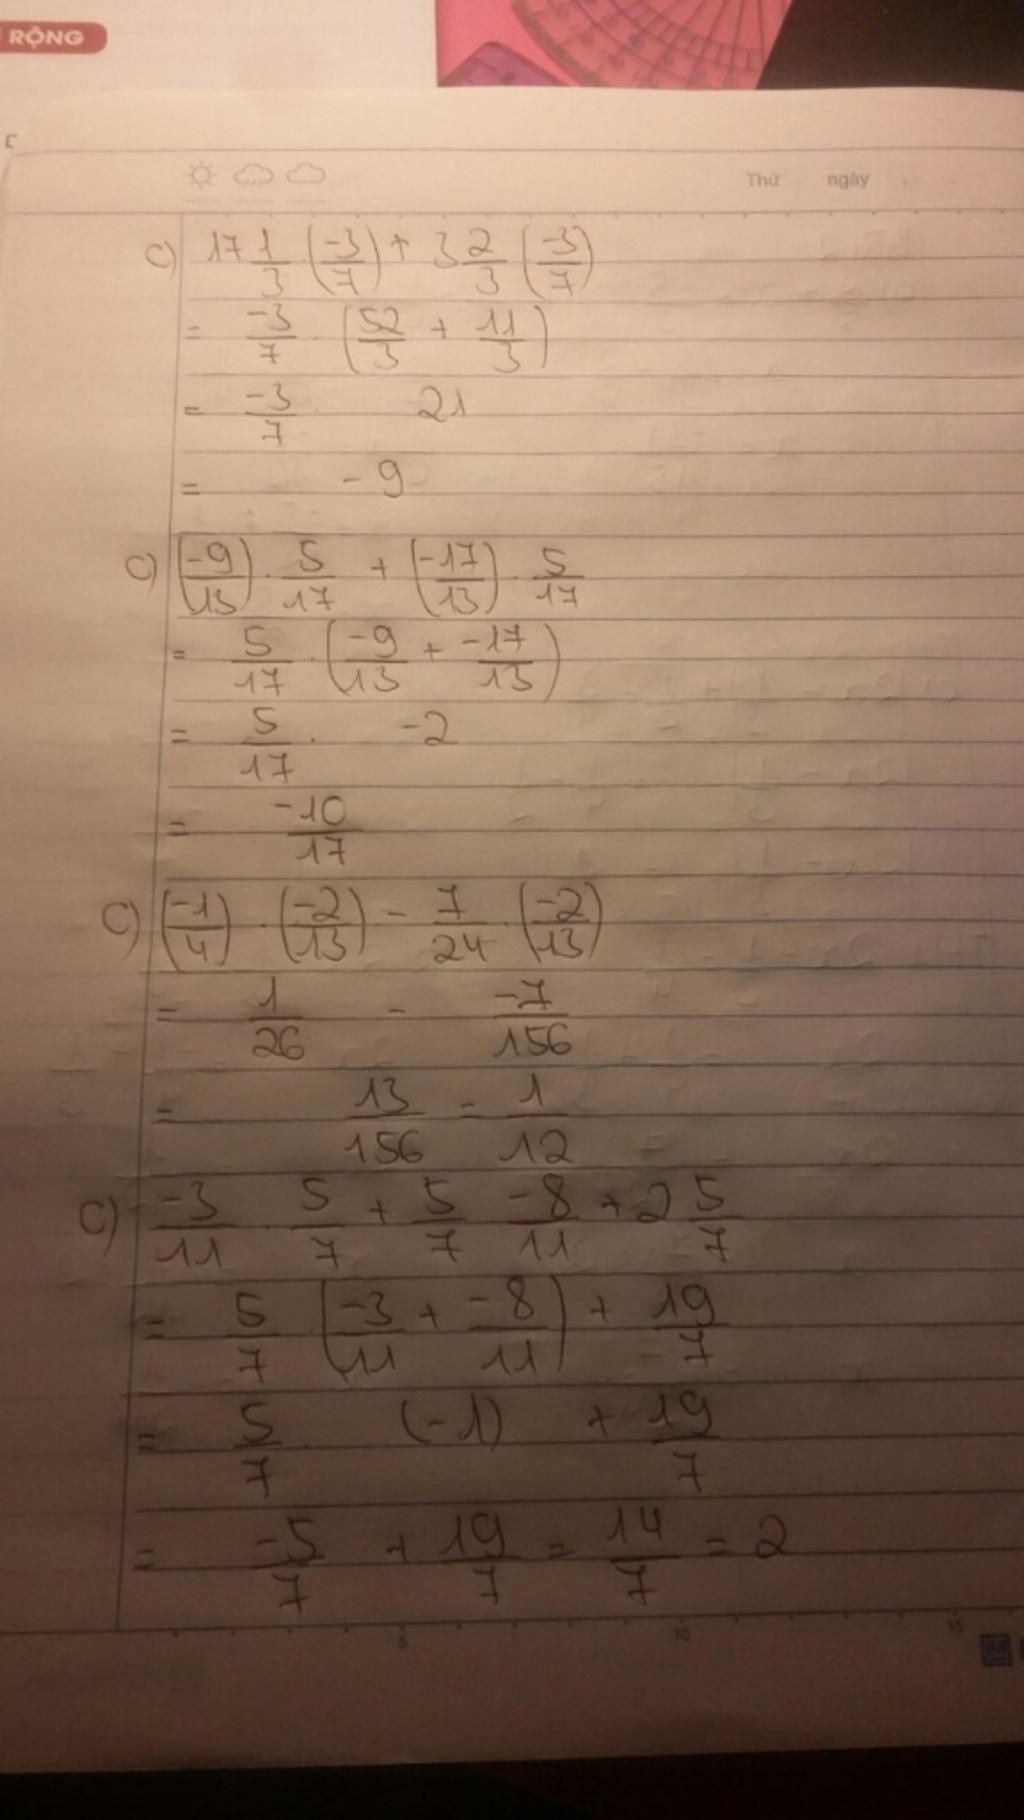 RỘNG
Thứ ngày
c) 17 1/3 · (-3/7) + 3 2/3 (-3/7)
= -3/7 · (52/3 + 11/3)
= -3/7 · 21
= -9
c) (-9/13) · 5/17 + (-17/13) · 5/17
= 5/17 · (-9/13 + -17/13)
= 5/17 · -2
= -10/17
c) (-1/4) · (-2/13) - 7/24 · (-2/13)
= 1/26 - -7/156
= 13/156 = 1/12
c) -3/11 · 5/7 + 5/7 · -8/11 + 2 5/7
= 5/7 · (-3/11 + -8/11) + 19/7
= 5/7 · (-1) + 19/7
= -5/7 + 19/7 = 14/7 = 2
5 10 15